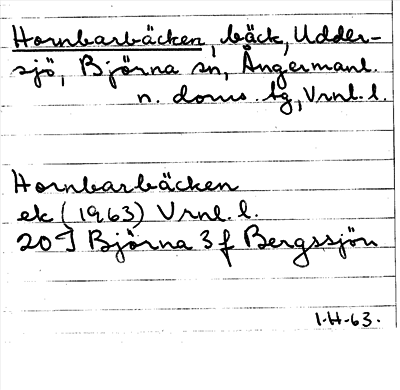 Hornbarbäcken, bäck, Udder-
sjö, Björna sn, Ångermanl.
n. doms. tg, Vrnl. l.
Hornbarbäcken
ek (1963) Vrnl. l.
20 J Björna 3 f Bergssjön
1-H-63.